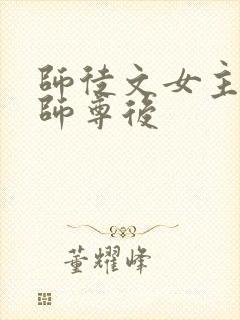 師徒文女主
師尊後
董耀峰